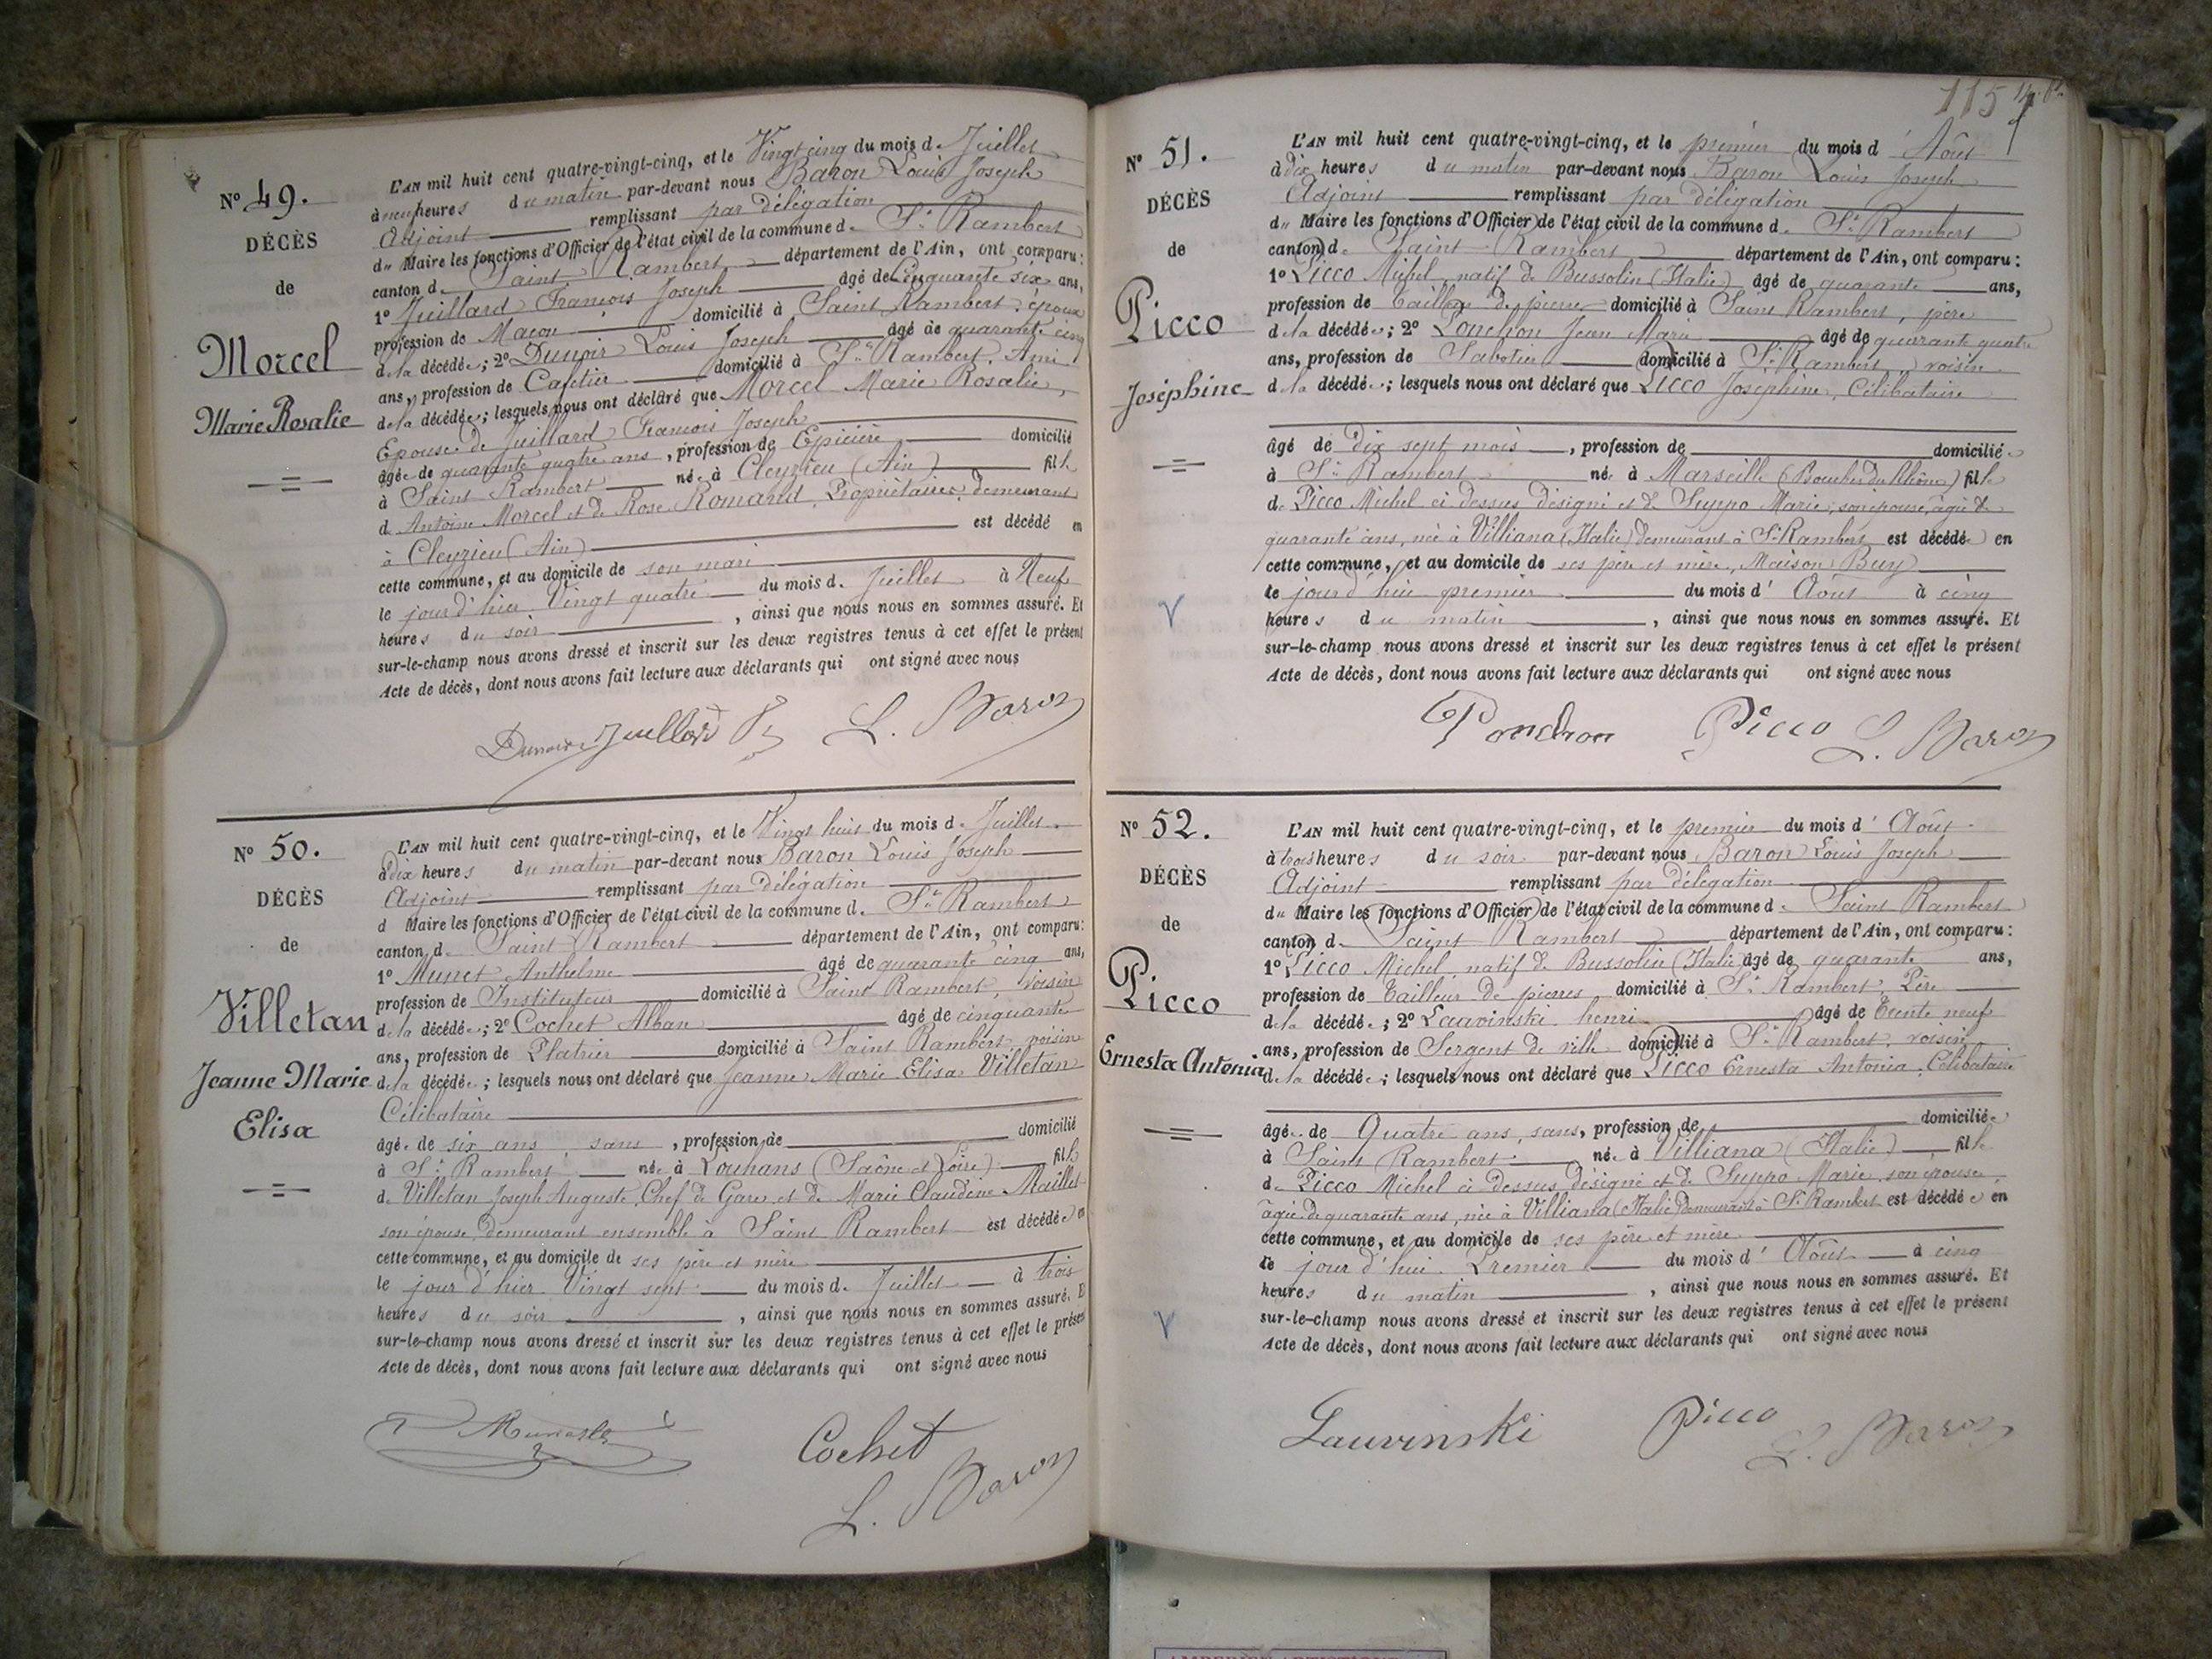 N° 49.
DÉCÈS
de
Morcel
Marie Rosalie
L'AN mil huit cent quatre-vingt-cinq, et le Vingt cinq du mois d. Juillet
à neuf heures du matin par-devant nous Baron Louis Joseph
Adjoint remplissant par délégation
du Maire les fonctions d'Officier de l'état civil de la commune d. St Rambert
canton d. Saint Rambert département de l'Ain, ont comparu:
1° Juillard François Joseph âgé de Cinquante six ans,
profession de Maçon domicilié à Saint Rambert, époux
de la décédée; 2° Dunoir Louis Joseph âgé de quarante cinq
ans, profession de Cafetier domicilié à St Rambert, Ami
de la décédée; lesquels nous ont déclaré que Morcel Marie Rosalie,
Epouse de Juillard François Joseph
âgée de quarante quatre ans, profession de Epicière domicilié
à Saint Rambert née à Cleyzieu (Ain) fille
d. Antoine Morcel et de Rose Romand, Propriétaires, demeurant
à Cleyzieu (Ain) est décédé en
cette commune, et au domicile de son mari
le jour d'hier Vingt quatre du mois d. Juillet à Neuf
heures du soir, ainsi que nous nous en sommes assuré. Et
sur-le-champ nous avons dressé et inscrit sur les deux registres tenus à cet effet le présent
Acte de décès, dont nous avons fait lecture aux déclarants qui ont signé avec nous
Dunoir Juillard L. Baron
N° 50.
DÉCÈS
de
Villetan
Jeanne Marie
Elisa
L'AN mil huit cent quatre-vingt-cinq, et le Vingt huit du mois d. Juillet
à dix heures du matin par-devant nous Baron Louis Joseph
Adjoint remplissant par délégation
d Maire les fonctions d'Officier de l'état civil de la commune d. St Rambert
canton d. Saint Rambert département de l'Ain, ont comparu:
1° Munet Anthelme âgé de quarante cinq ans,
profession de Instituteur domicilié à Saint Rambert, voisin
de la décédée; 2° Cochet Alban âgé de cinquante
ans, profession de Platrier domicilié à Saint Rambert, voisin
de la décédée; lesquels nous ont déclaré que Jeanne Marie Elisa Villetan
Célibataire
âgée de six ans, sans, profession de domicilié
à St Rambert née à Louhans (Saône et Loire) fille
de Villetan Joseph Auguste, Chef de Gare, et de Marie Claudine Maillet
son épouse, demeurant ensemble à Saint Rambert est décédée en
cette commune, et au domicile de ses père et mère
le jour d'hier Vingt sept du mois d. Juillet à trois
heures du soir, ainsi que nous nous en sommes assuré. Et
sur-le-champ nous avons dressé et inscrit sur les deux registres tenus à cet effet le présent
Acte de décès, dont nous avons fait lecture aux déclarants qui ont signé avec nous
Cochet
L. Baron
115
N° 51.
DÉCÈS
de
Picco
Joséphine
L'AN mil huit cent quatre-vingt-cinq, et le premier du mois d'Août
à dix heures du matin par-devant nous Baron Louis Joseph
Adjoint remplissant par délégation
du Maire les fonctions d'Officier de l'état civil de la commune d. St Rambert
canton d. Saint Rambert département de l'Ain, ont comparu:
1° Picco Michel, natif de Bussolin (Italie) âgé de quarante ans,
profession de Tailleur de pierres domicilié à Saint Rambert, père
de la décédée; 2° Ponchon Jean Marie âgé de quarante quatre
ans, profession de Sabotier domicilié à St Rambert, voisin
de la décédée; lesquels nous ont déclaré que Picco Joséphine, Célibataire
âgé de dix sept mois, profession de domiciliée
à St Rambert née à Marseille (Bouches du Rhône) fille
de Picco Michel ci dessus désigné et de Suppo Marie, son épouse, âgée de
quarante ans, née à Villiana (Italie) demeurant à St Rambert est décédée en
cette commune, et au domicile de ses père et mère, Maison Buy
le jour d'hui premier du mois d'Août à cinq
heures du matin, ainsi que nous nous en sommes assuré. Et
sur-le-champ nous avons dressé et inscrit sur les deux registres tenus à cet effet le présent
Acte de décès, dont nous avons fait lecture aux déclarants qui ont signé avec nous
Ponchon Picco L. Baron
N° 52.
DÉCÈS
de
Picco
Ernesta Antonia
L'AN mil huit cent quatre-vingt-cinq, et le premier du mois d'Août
à trois heures du soir par-devant nous Baron Louis Joseph
Adjoint remplissant par délégation
du Maire les fonctions d'Officier de l'état civil de la commune d. Saint Rambert
canton d. Saint Rambert département de l'Ain, ont comparu:
1° Picco Michel, natif de Bussolin (Italie) âgé de quarante ans,
profession de Tailleur de pierres domicilié à St Rambert, Père
de la décédée; 2° Lauvinski henri âgé de Trente neuf
ans, profession de Sergent de ville domicilié à St Rambert, voisin
de la décédée; lesquels nous ont déclaré que Picco Ernesta Antonia, Célibataire
âgée de Quatre ans, sans, profession de domiciliée
à Saint Rambert née à Villiana (Italie) fille
de Picco Michel ci dessus désigné et de Suppo Marie, son épouse,
âgée de quarante ans, née à Villiana (Italie) demeurant à St Rambert est décédée en
cette commune, et au domicile de ses père et mère
le jour d'hui Premier du mois d'Août à cinq
heures du matin, ainsi que nous nous en sommes assuré. Et
sur-le-champ nous avons dressé et inscrit sur les deux registres tenus à cet effet le présent
Acte de décès, dont nous avons fait lecture aux déclarants qui ont signé avec nous
Lauvinski Picco L. Baron